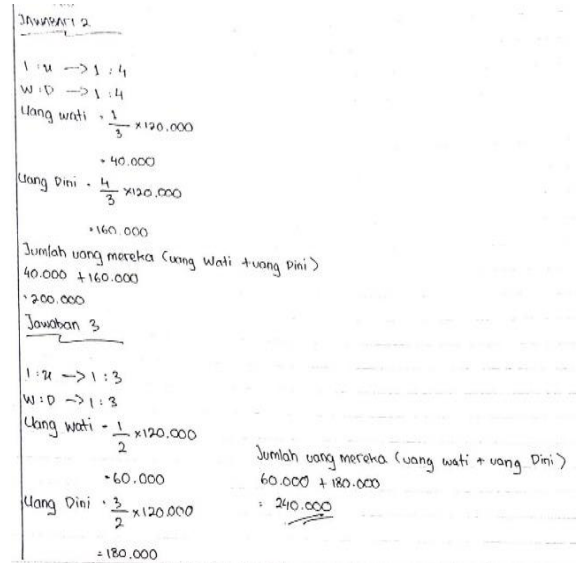 JAWABAN 2
1 : u -> 1 : 4
W : D -> 1 : 4
Uang wati = 1/3 x 120.000
= 40.000
Uang Dini = 4/3 x 120.000
= 160.000
Jumlah uang mereka (uang Wati + uang Dini)
40.000 + 160.000
= 200.000
Jawaban 3
1 : u -> 1 : 3
W : D -> 1 : 3
Uang wati = 1/2 x 120.000
= 60.000
Uang Dini = 3/2 x 120.000
= 180.000
Jumlah uang mereka (uang wati + uang Dini)
60.000 + 180.000
= 240.000